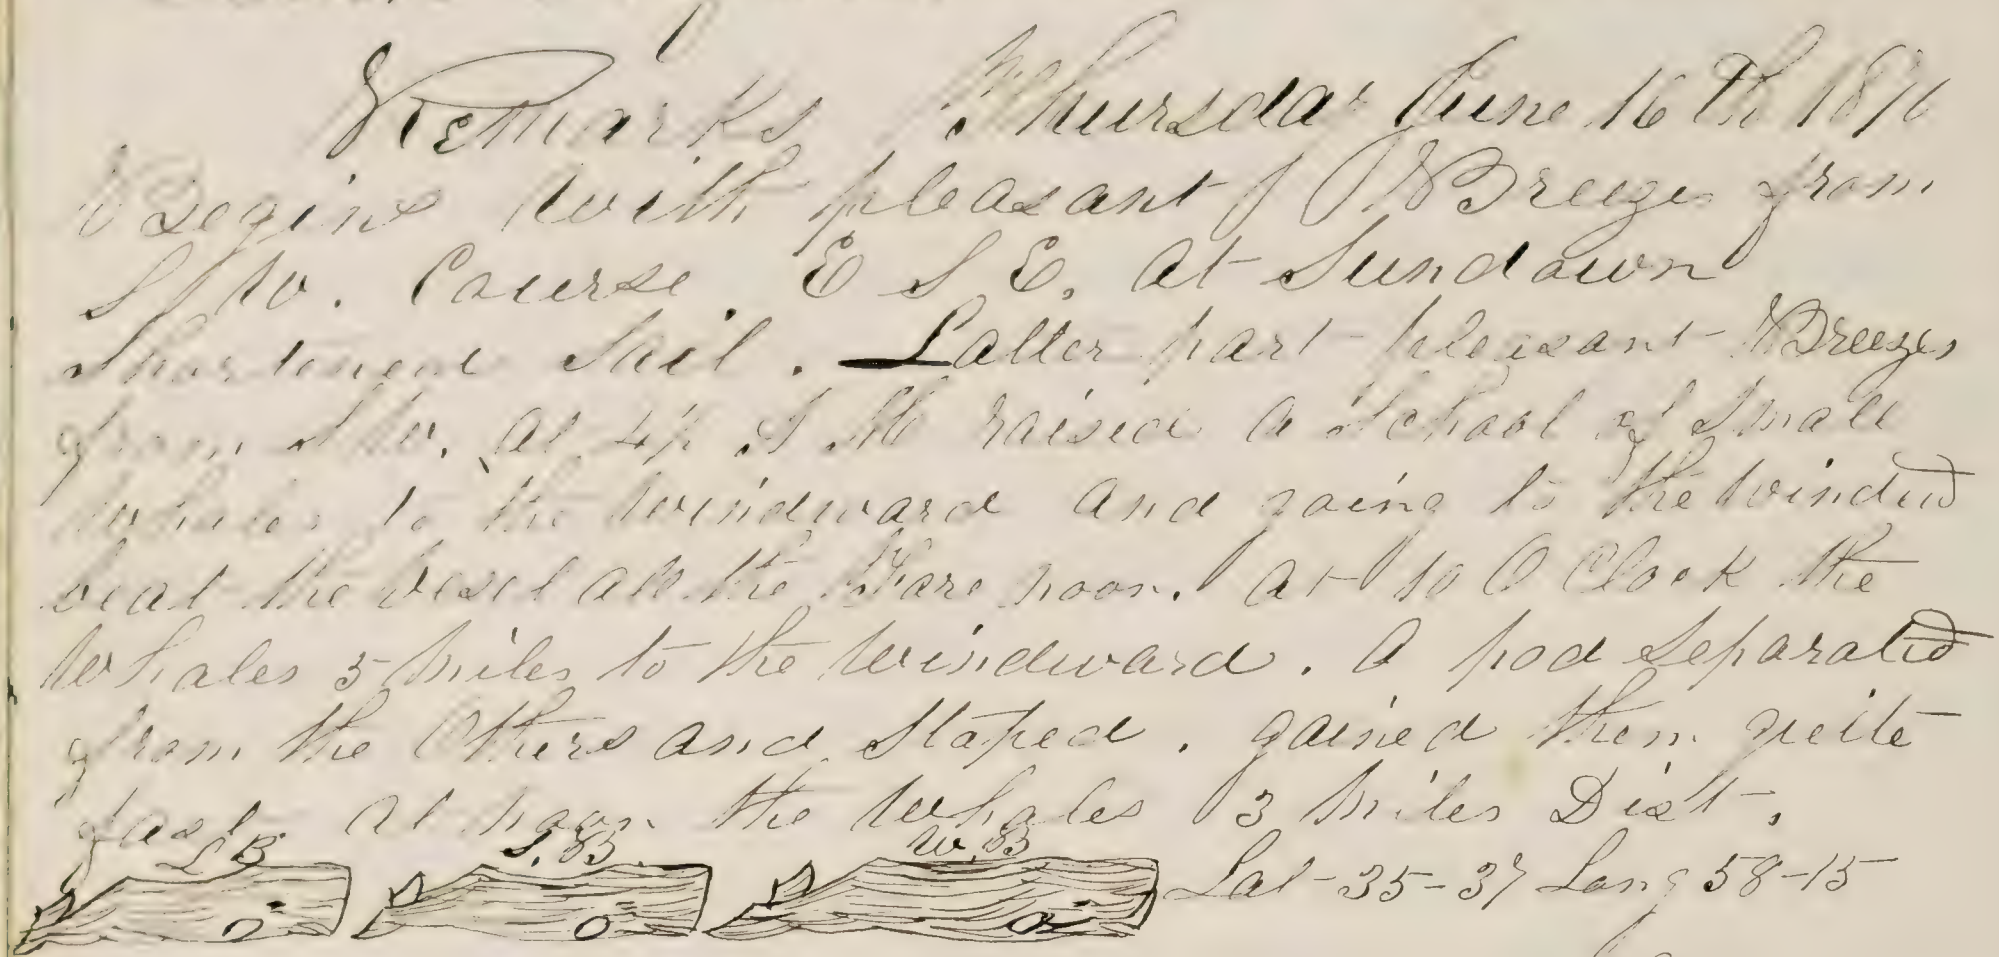 Remarks Thursday June 16 Th 1870
Begins with pleasant Breezes from
S W. Course. E S E. at Sundown
Shortened Sail. Latter part pleasant Breezes
from S W. at 4½ raised a School of Small
Whales to the windward and going to the windwd
beat the vesel all the Fore noon. at 10 O Clock the
Whales 5 miles to the windward. A pod Separated
from the Others and Stoped. gained them quite
fast at noon the Whales 3 miles Dist.
L B S. B W. B
Lat 35-37 Long 58-15